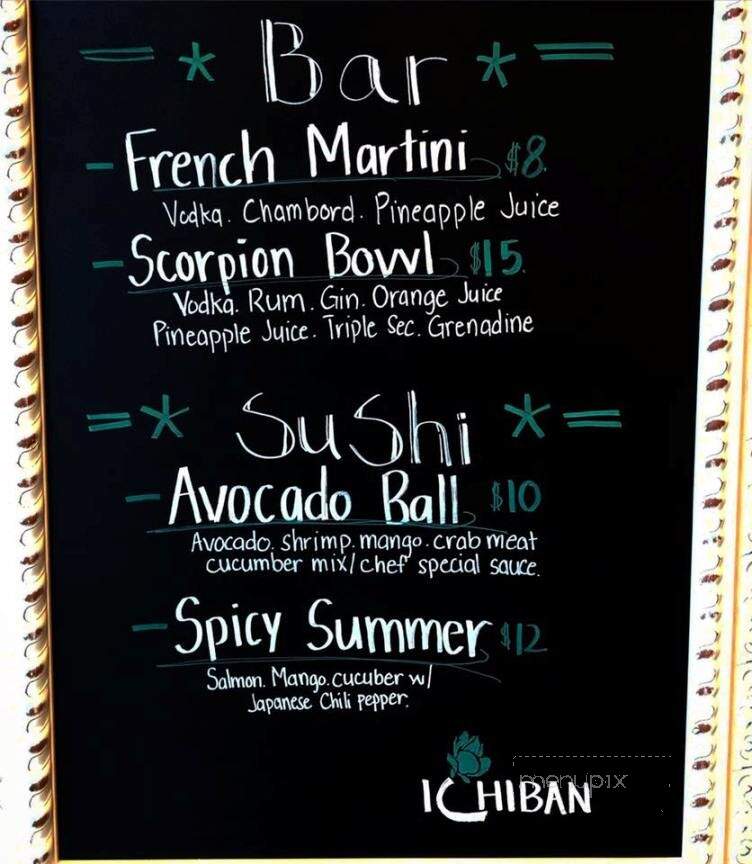 Bar
- French Martini $8.
Vodka. Chambord. Pineapple Juice
- Scorpion Bowl $15.
Vodka. Rum. Gin. Orange Juice
Pineapple Juice. Triple Sec. Grenadine
SuShi
- Avocado Ball $10
Avocado. shrimp. mango. crab meat
cucumber mix/chef special sauce.
- Spicy Summer $12
Salmon. Mango. cucuber w/
Japanese Chili pepper.
menupix
ICHIBAN